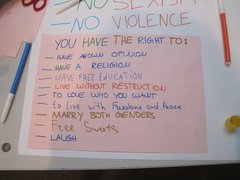 -NO SEXISM
-NO VIOLENCE
YOU HAVE THE RIGHT TO:
- HAVE OWN OPINION
- HAVE A RELIGION
- HAVE FREE EDUCATION
- LIVE WITHOUT RESTRUCTION
- TO LOVE WHO YOU WANT
- to live with Freedome and Peace.
- MARRY BOTH GENDERS
- Free Sweets
- LAUGH